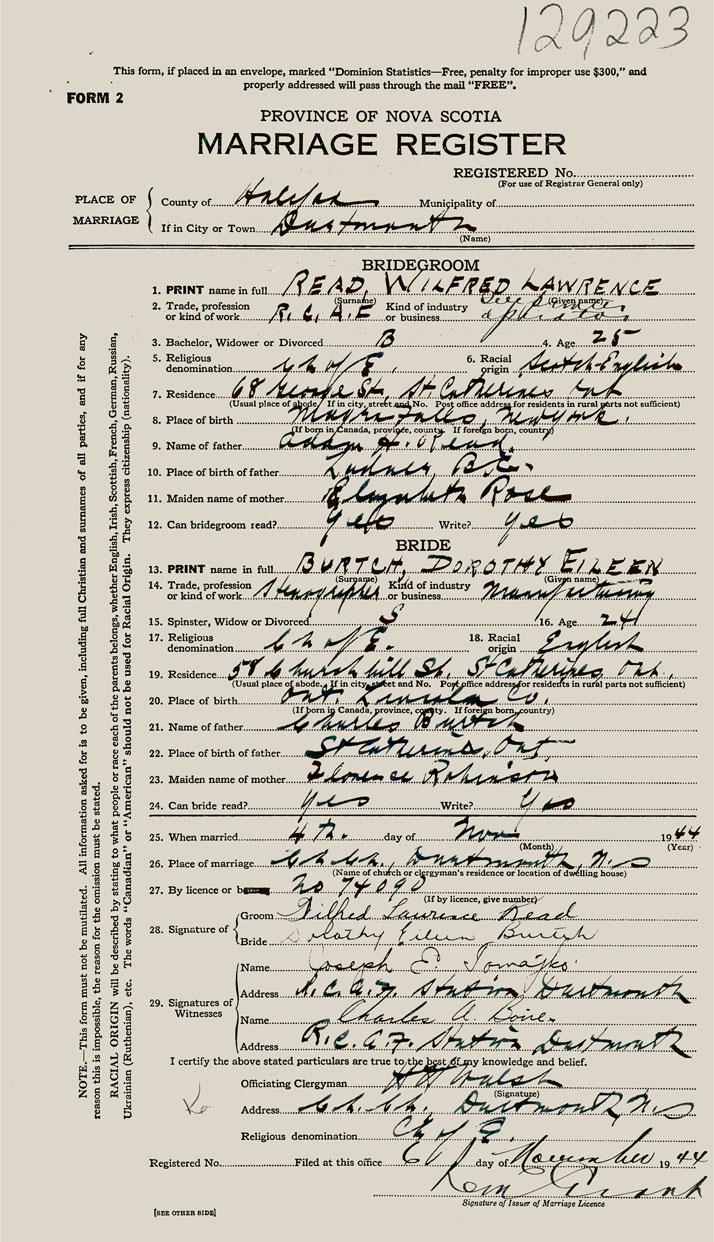 129223
This form, if placed in an envelope, marked "Dominion Statistics—Free, penalty for improper use $300," and
properly addressed will pass through the mail "FREE".
FORM 2
PROVINCE OF NOVA SCOTIA
MARRIAGE REGISTER
REGISTERED No.
(For use of Registrar General only)
PLACE OF MARRIAGE
County of Halifax Municipality of
If in City or Town Dartmouth
(Name)
BRIDEGROOM
1. PRINT name in full READ, WILFRED LAWRENCE
(Surname) (Given name)
2. Trade, profession or kind of work R.C.A.F. Kind of industry or business operator
3. Bachelor, Widower or Divorced B 4. Age 25
5. Religious denomination Ch of E. 6. Racial origin Scotch-English
7. Residence 68 George St, St Catherines Ont
(Usual place of abode. If in city, street and No. Post office address for residents in rural parts not sufficient)
8. Place of birth Falls, New York.
(If born in Canada, province, county. If foreign born, country)
9. Name of father Adam Read.
10. Place of birth of father
11. Maiden name of mother Elizabeth Rose
12. Can bridegroom read? yes Write? yes
BRIDE
13. PRINT name in full BURTCH, DOROTHY EILEEN
(Surname) (Given name)
14. Trade, profession or kind of work Stenographer Kind of industry or business Manufacturing
15. Spinster, Widow or Divorced S 16. Age 24
17. Religious denomination Ch of E. 18. Racial origin English
19. Residence 58 Churchill St. St Catherines, Ont.
(Usual place of abode. If in city, street and No. Post office address for residents in rural parts not sufficient)
20. Place of birth Ont. Lincoln Co.
(If born in Canada, province, county. If foreign born, country)
21. Name of father Charles Burtch
22. Place of birth of father St Catherines, Ont
23. Maiden name of mother Florence Robinson
24. Can bride read? yes Write? Yes
25. When married 4th. day of Nov 1944
(Month) (Year)
26. Place of marriage Ch. Ch., Dartmouth, N.S
(Name of church or clergyman's residence or location of dwelling house)
27. By licence or No 74090
(If by licence, give number)
28. Signature of
Groom Wilfred Lawrence Read
Bride Dorothy Eileen Burtch
29. Signatures of Witnesses
Name Joseph E.
Address R.C.A.F. Station Dartmouth
Name Charles A. Boire.
Address R.C.A.F. Station Dartmouth
I certify the above stated particulars are true to the best of my knowledge and belief.
Officiating Clergyman Walsh
(Signature)
Address Ch. Ch., Dartmouth, N.S
Religious denomination Ch of E.
Registered No. Filed at this office 6 day of November 1944
Signature of Issuer of Marriage Licence
[SEE OTHER SIDE]
NOTE.—This form must not be mutilated. All information asked for is to be given, including full Christian and surnames of all parties, and if for any
reason this is impossible, the reason for the omission must be stated.
RACIAL ORIGIN will be described by stating to what people or race each of the parents belongs, whether English, Irish, Scottish, French, German, Russian,
Ukrainian (Ruthenian), etc. The words "Canadian" or "American" should not be used for Racial Origin. They express citizenship (nationality).